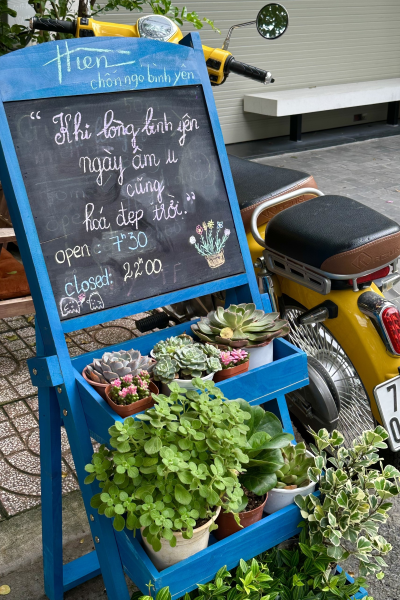 Hiên
chốn ngỏ bình yên
“Khi lòng bình yên
ngày âm u
cũng
hoá đẹp trời.”
open : 7h30
closed: 22h00
7
0